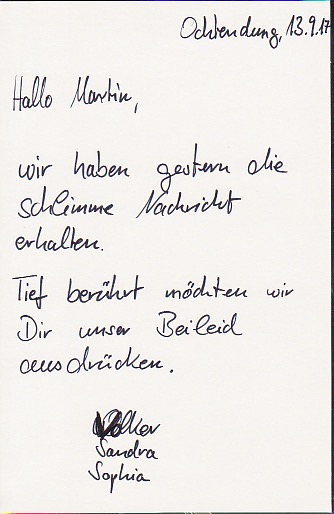 Ochtendung, 13.9.17
Hallo Martin,
wir haben gestern die
schlimme Nachricht
erhalten.
Tief berührt möchten wir
Dir unser Beileid
ausdrücken.
Volker
Sandra
Sophia